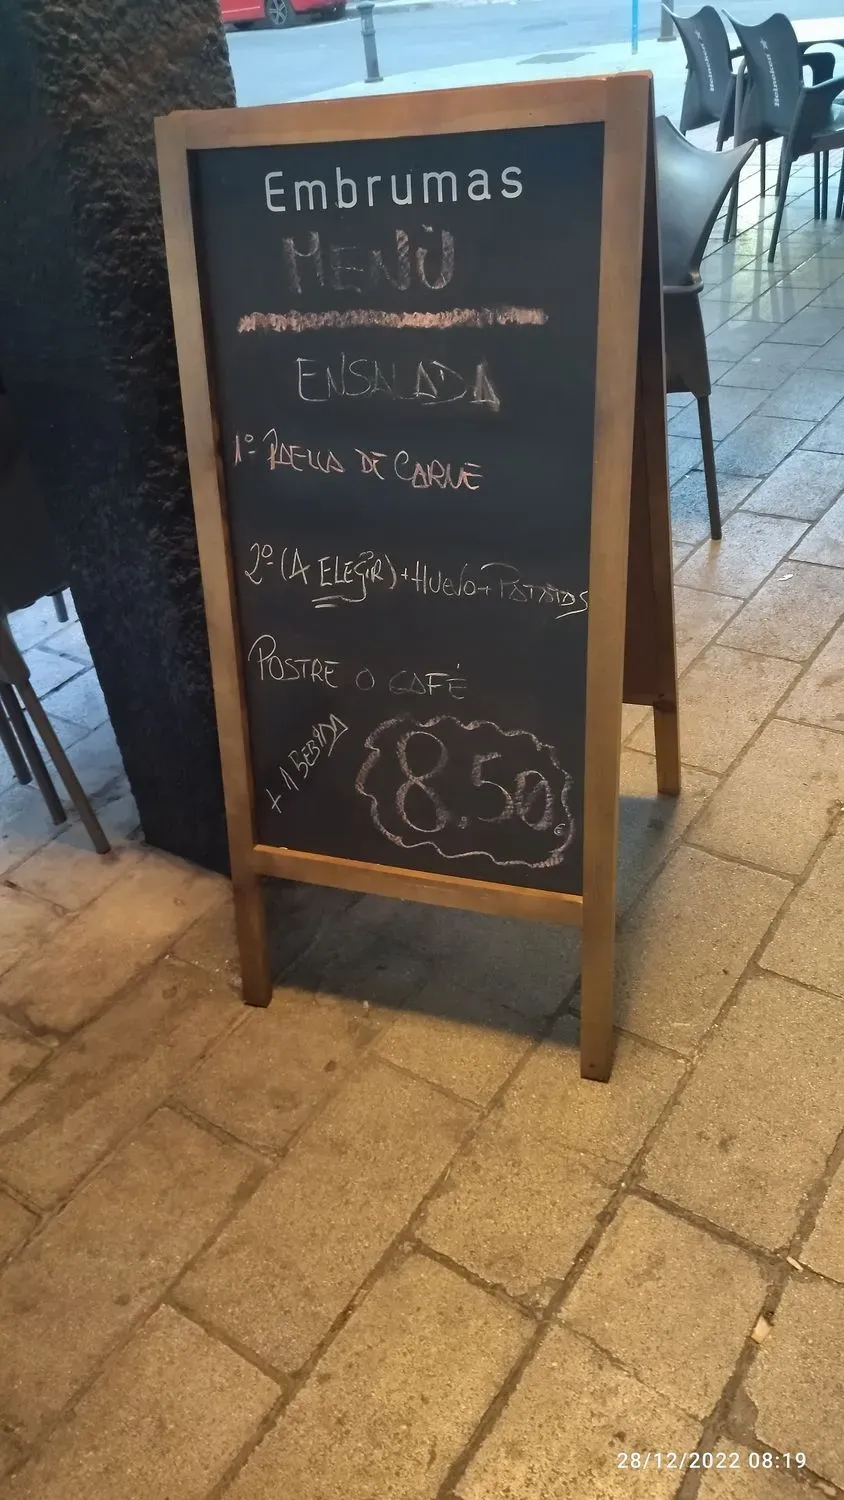 Heineken
Heineken
Embrumas
MENÙ
ENSALADA
1º PAELLA DE CARNE
2º (A ELEGIR) + HUEVO + PATATAS
POSTRE O CAFÉ
+ 1 BEBIDA
8,50€
28/12/2022 08:19